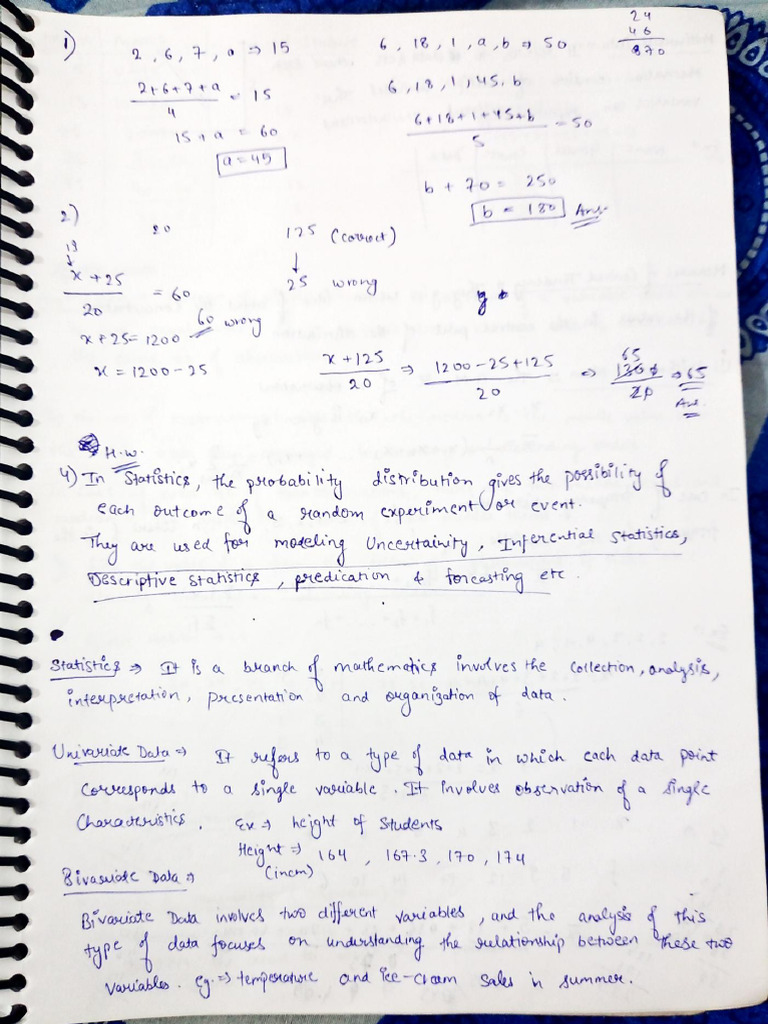 1)
2, 6, 7, a ⇒ 15
2+6+7+a / 4 = 15
15 + a = 60
a = 45
6, 18, 1, a, b ⇒ 50
6, 18, 1, 45, b
6+18+1+45+b / 5 = 50
b + 70 = 250
b = 180 Ans.
24
46
870
2)
19
↓
x + 25 / 20 = 60
60 wrong
x + 25 = 1200
x = 1200 - 25
80
125 (correct)
↓
25 wrong
x + 125 / 20 ⇒ 1200 - 25 + 125 / 20 ⇒ 65 1300 / 20 ⇒ 65
Ans.
H.W.
4) In Statistics, the probability distribution gives the possibility of
each outcome of a random experiment or event.
They are used for modeling Uncertainity, Inferential Statistics,
Descriptive statistics, predication & forcasting etc.
Statistics ⇒ It is a branch of mathematics involves the collection, analysis,
interpretation, presentation and organization of data.
Univariate Data ⇒ It refers to a type of data in which each data point
corresponds to a single variable. It involves observation of a single
characteristics. Ex ⇒ height of students
Height ⇒ 164, 167.3, 170, 174
(in cm)
Bivariate Data ⇒
Bivariate Data involves two different variables, and the analysis of this
type of data focuses on understanding the relationship between these two
variables. eg. ⇒ temperature and ice-cream sales in summer.